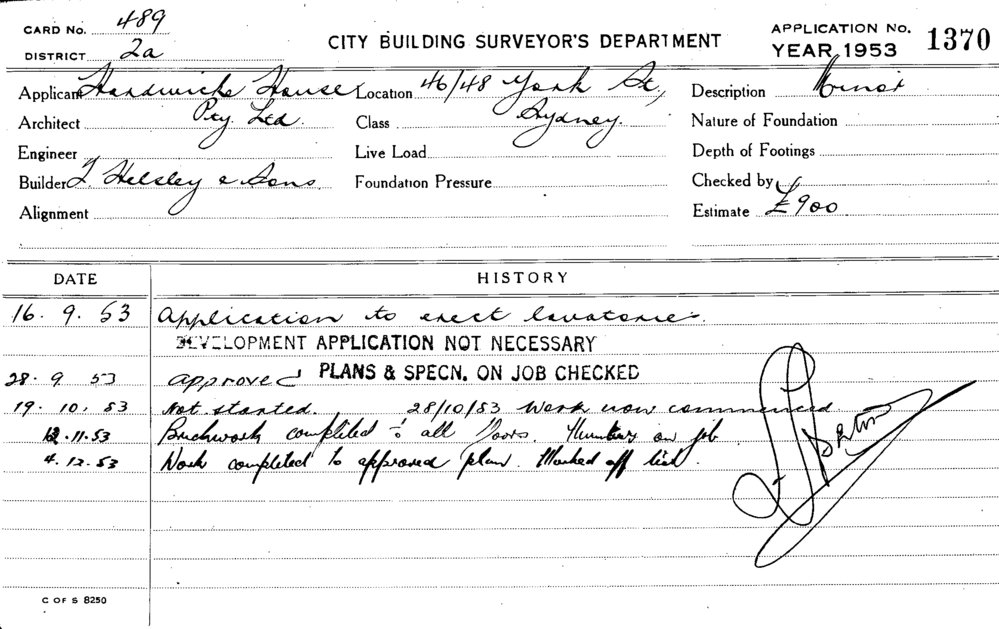 CARD No. 489
DISTRICT 2a
CITY BUILDING SURVEYOR'S DEPARTMENT
APPLICATION No.
YEAR 1953 1370
Applicant Hardwicke House Location 46/48 York St., Description Minor
Architect Pty. Ltd. Class Sydney. Nature of Foundation
Engineer Live Load Depth of Footings
Builder Helsley & Sons. Foundation Pressure Checked by
Alignment Estimate £900
DATE HISTORY
16. 9. 53 Application to erect lavatories.
DEVELOPMENT APPLICATION NOT NECESSARY
28. 9 53 approved PLANS & SPECN. ON JOB CHECKED
19. 10. 53 Not started. 28/10/53 Work now commenced
12.11.53 Brickwork completed to all floors. on job
4. 12. 53 Work completed to approved plan. Marked off list.
C OF S 8250